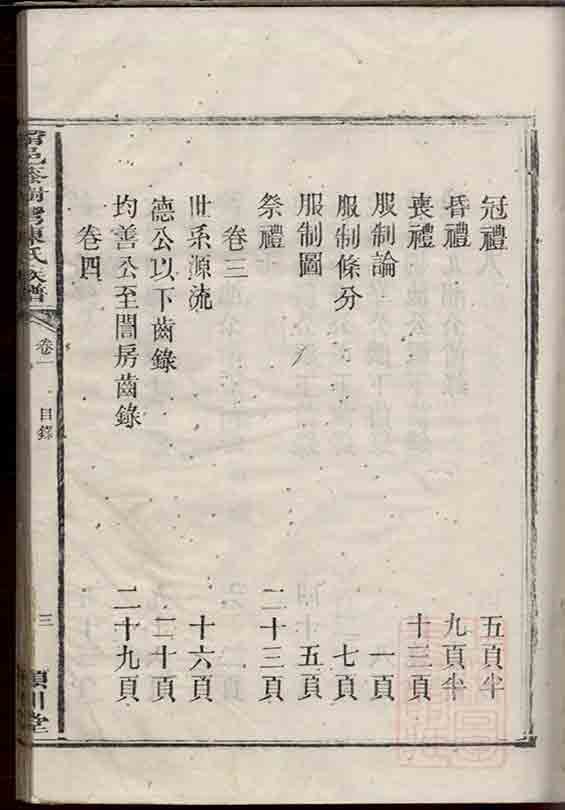 冠禮 五頁半
昏禮 九頁半
喪禮 十三頁
服制論 一頁
服制條分 七頁
服制圖 五頁
祭禮 二十三頁
卷三
世系源流 十六頁
德公以下齒錄 二十頁
均善公至誾房齒錄 二十九頁
卷四
陳氏族譜
卷一
目錄
三
潁川堂